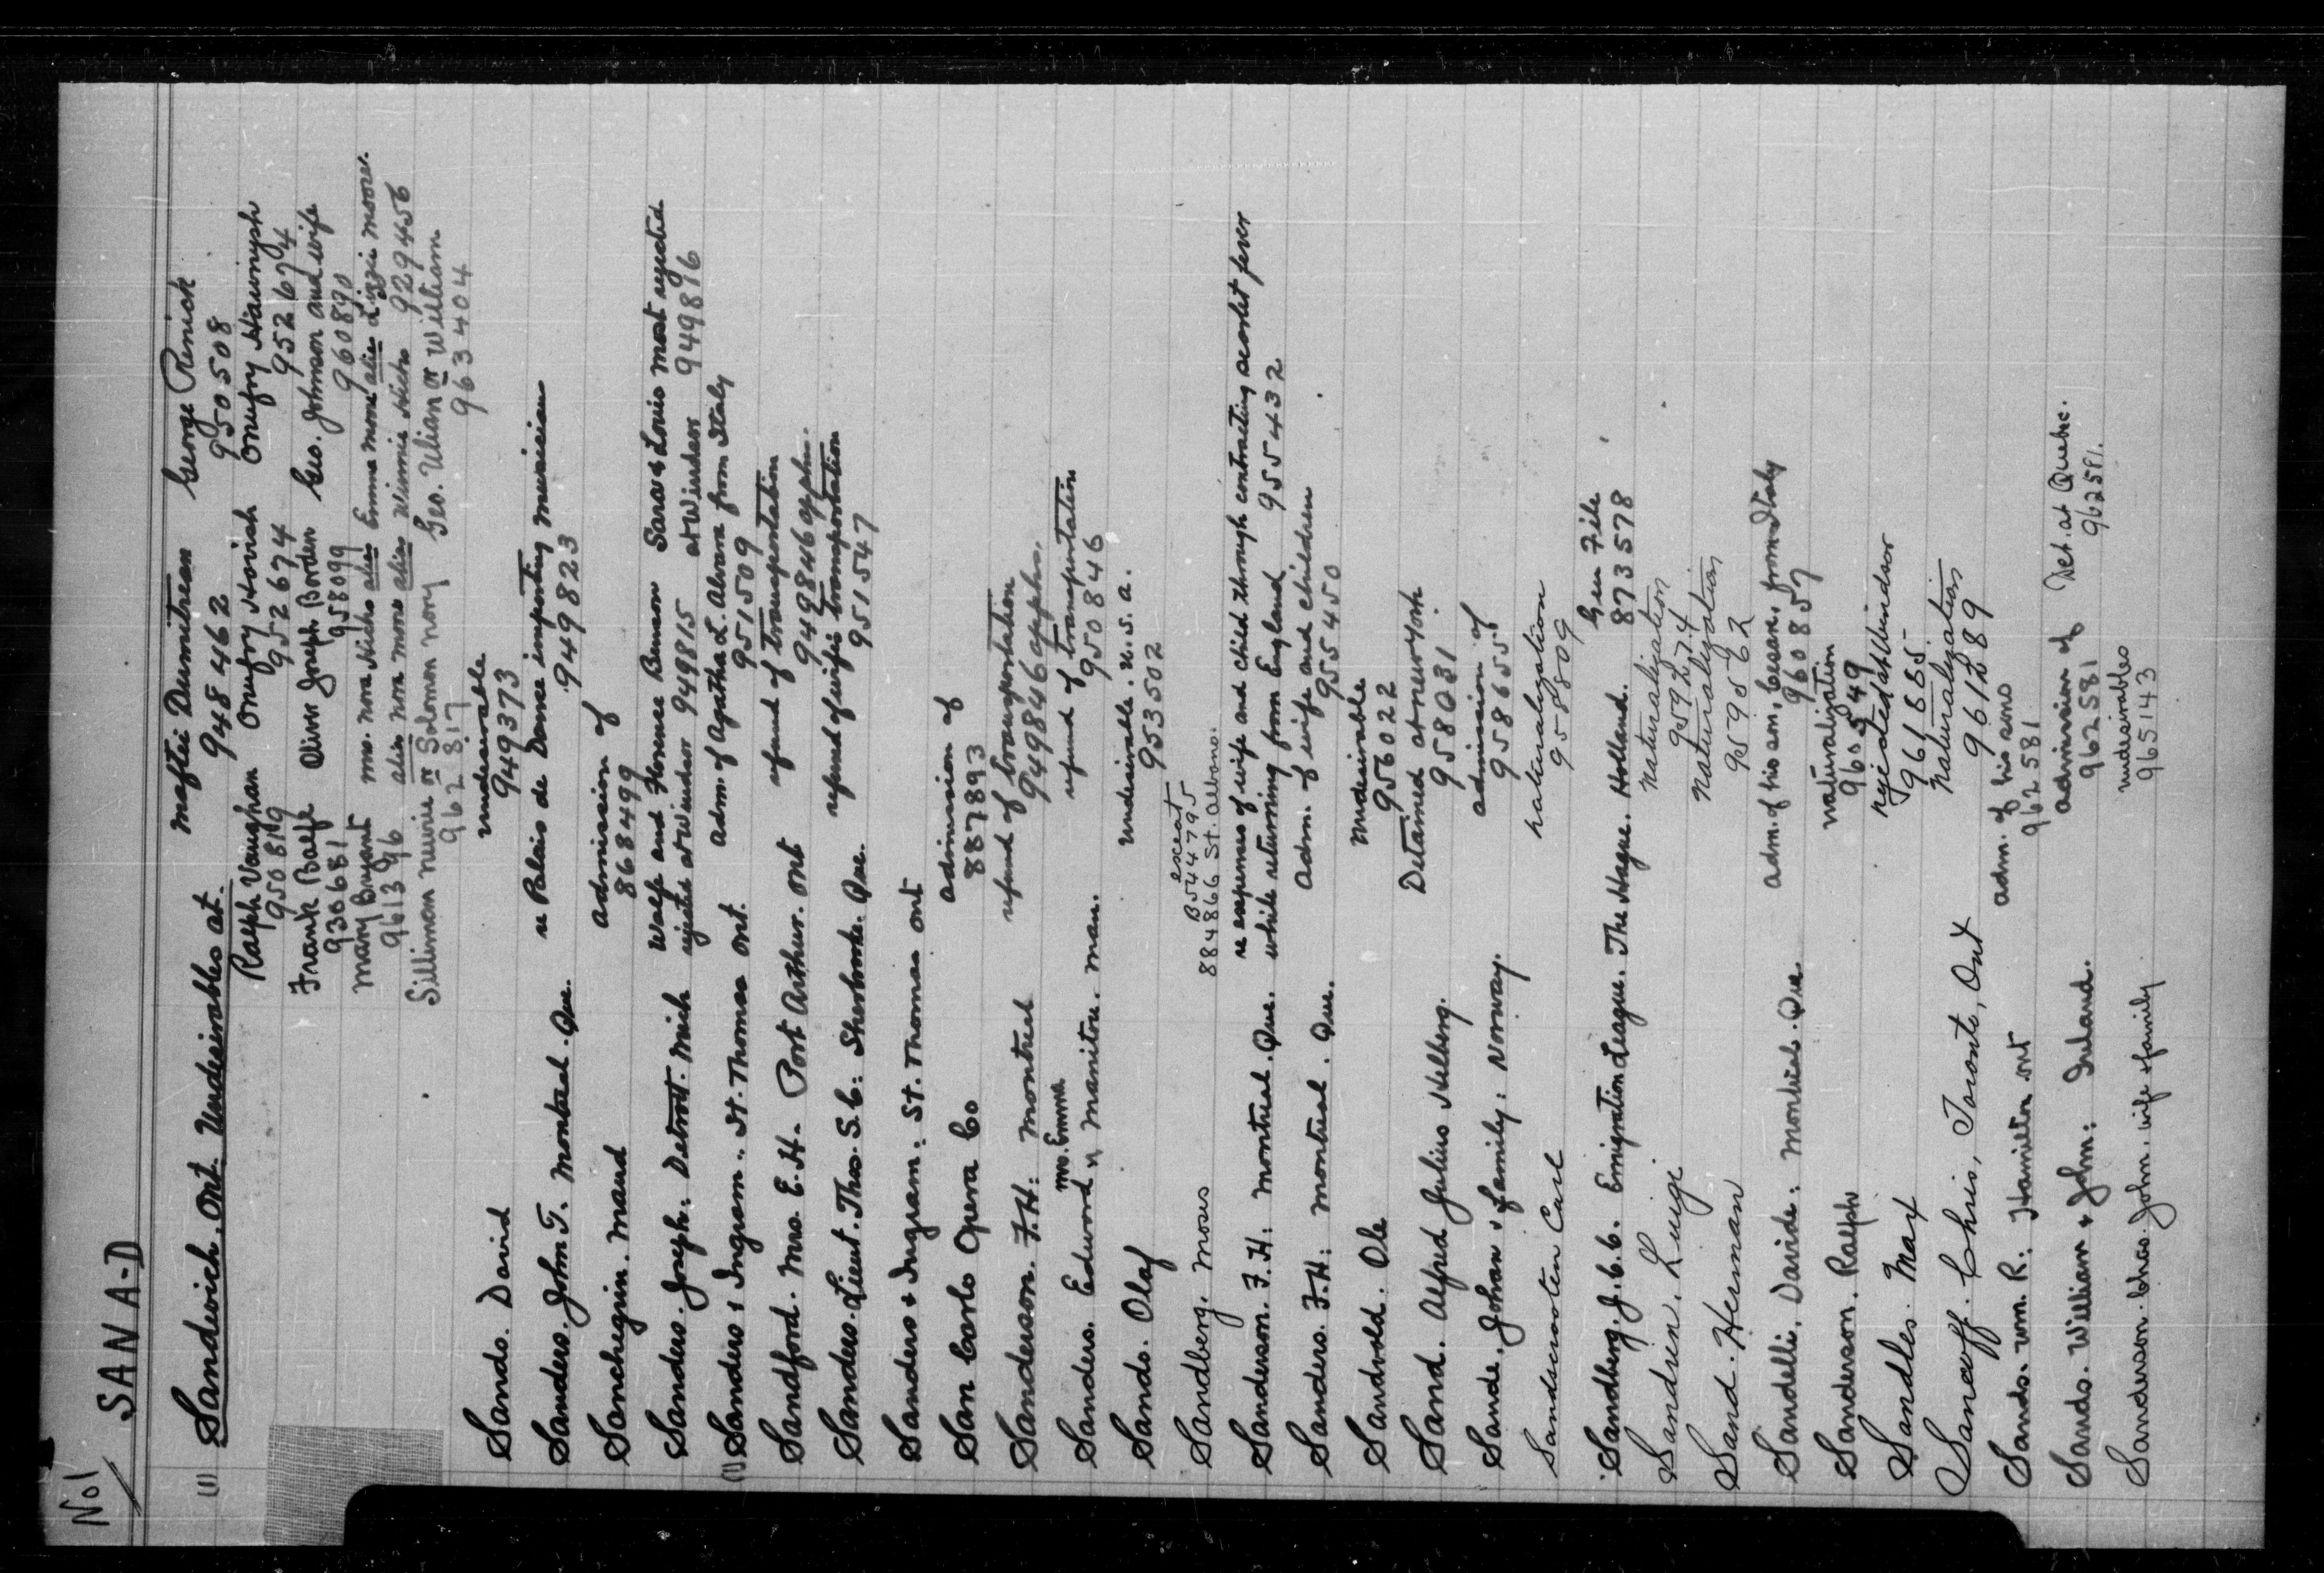 No 1
SAN A-D
(1) Sandwich. Ont. Undesirables at. Maftei Dumitrean George Renick
948462 950508
Ralph Vaughan Onufry Hovish Onufry Hawrysh
950819 952674 952674
Frank Balfe Oliver Joseph Borden Geo. Johnson and wife
930681 958099 960890
Mary Bryant Mrs. Nora Hicks alias Emma Moore alias Lizzie Moore.
961396 alias Nora Moore alias Winnie Hicks 929456
Silliman Nurie or Solomon Nory Geo. Ulian or William
962817 963404
Sands. David undesirable
949373
Sanders. John T. Montreal. Que. re Palais de Dance importing musician
949823
Sanchegrin. Maud admission of
868499
Sanders. Joseph: Detroit. Mich Wolfe and Florence Benson Sara & Louis Most rejected
rejected at Windsor 949815 at Windsor 949816
(1) Sanders & Ingram: St. Thomas Ont. adm. of Agatha L. Alvaro from Italy
951509
Sandford. Mrs. E.H. Port Arthur. Ont refund of transportation
949846
Sanders. Lieut. Thos. S.C: Sherbrooke. Que. refund of wife's transportation
951547
Sanders & Ingram: St. Thomas Ont
San Carlo Opera Co admission of
887893
Sanderson. F.H: Montreal refund of transportation
949846
Mrs. Emma
Sanders. Edward Manitou. Man. refund of transportation
950846
Sands. Olaf undesirable. U.S.A.
953502
Sandberg. Moses except
B544795
884866 St. Albans.
Sanderson. F.H: Montreal. Que. re expenses of wife and child through contracting scarlet fever
while returning from England 955432
Sanders. F.H: Montreal. Que. Adm. of wife and children
955450
Sandvold. Ole undesirable
956022
Sand. Alfred Julius Helberg. Detained at New York
958031
Sande, Johan & family: Norway. admission of
958655
Sandsmoten Carl naturalization
958809
Sandberg. J.C.C. Emigration League. The Hague. Holland. Gen File
873578
Sandrin. Luigi naturalization
959274
Sand. Herman naturalization
959562
Sandelli, Davide: Montreal. Que. adm. of his son, Cesare, from Italy
960857
Sanderson. Ralph naturalization
960549
Sandles. Max rejected at Windsor
961885
Sancoff. Chris, Toronto, Ont naturalization
961289
Sands. Wm. R: Hamilton Ont adm. of his sons
962581
Sands. William & John: Ireland. admission of Det. at Quebec.
962581 962581.
Sanderson. Chas. John. wife & family undesirables
965143